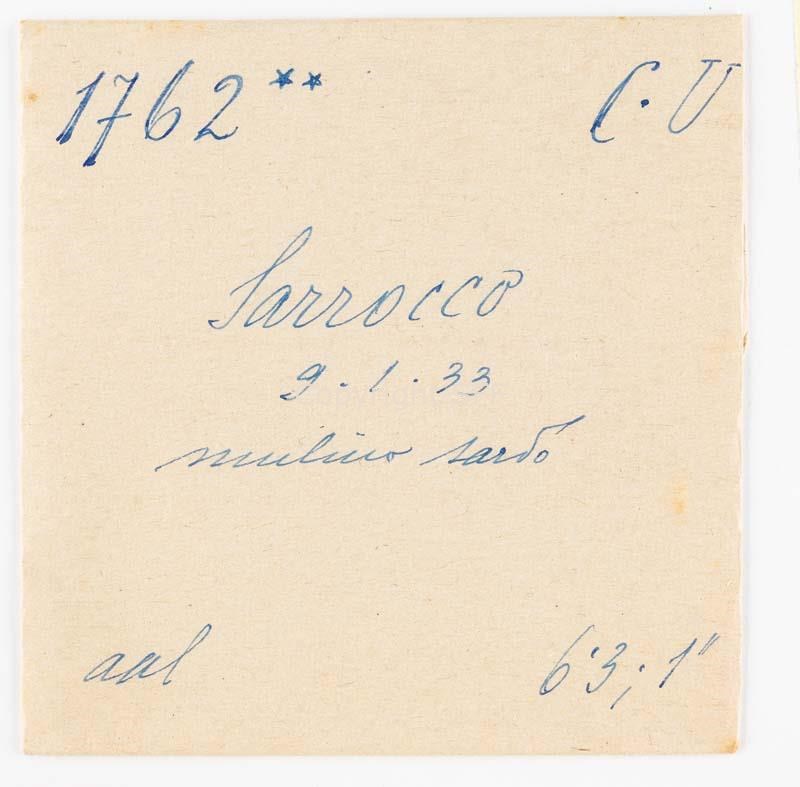 1762** C. U
Sarrocco
9.1.33
mulino sardo
aal 6'3; 1"